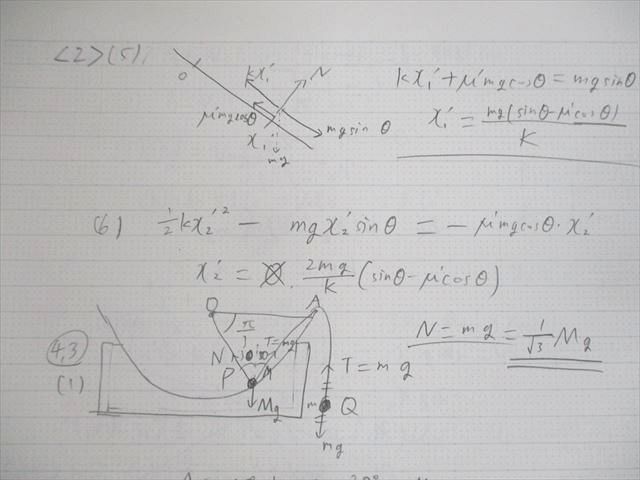 <2>(5)
O
kx₁'
N
μ'mgcosθ
mgsinθ
x₁'
mg
kx₁' + μ'mgcosθ = mgsinθ
x₁' = mg(sinθ-μ'cosθ) / K
(6) 1/2 kx₂'² - mgx₂'sinθ = -μ'mgcosθ・x₂'
x₂' = 2mg/K (sinθ-μ'cosθ)
O A
π/3
4,3
(1)
N
T=mg
P
Mg
T=mg
m Q
mg
N = mg = 1/√3 Mg